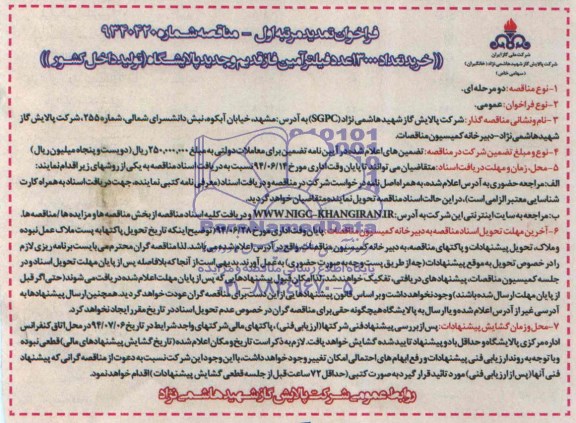 فراخوان تمدید مرتبه اول - مناقصه شماره ۹۳۳۰۳۲۰
((خرید تعداد ۱۳۰۰۰ عدد فیلتر آمین فاز قدیم و جدید پالایشگاه (تولید داخل کشور))
شرکت ملی گاز ایران
شرکت پالایش گاز شهید هاشمی نژاد (خانگیران)
(سهامی خاص)
۱-نوع مناقصه: دو مرحله ای.
۲-نوع فراخوان: عمومی.
۳- نام و نشانی مناقصه گذار: شرکت پالایش گاز شهید هاشمی نژاد (SGPC) به آدرس: مشهد، خیابان آبکوه، نبش دانشسرای شمالی، شماره ۲۵۵، شرکت پالایش گاز
شهید هاشمی نژاد- دبیرخانه کمیسیون مناقصات.
۴- نوع و مبلغ تضمین شرکت در مناقصه: تضمین های اعلام شده در آیین نامه تضمین برای معاملات دولتی به مبلغ ۲۵۰،۰۰۰،۰۰۰ ریال (دویست و پنجاه میلیون ریال)
۵- محل، زمان و مهلت دریافت اسناد: متقاضیان می توانند تا پایان وقت اداری مورخ ۹۴/۰۶/۱۴ نسبت به دریافت اسناد مناقصه به یکی از روشهای زیر اقدام نمایند:
الف: مراجعه حضوری به آدرس اعلام شده، به همراه اصل نامه درخواست شرکت در مناقصه و دریافت اسناد (معرفی نامه کتبی نماینده، جهت دریافت اسناد به همراه کارت
شناسایی معتبر الزامی است)، در این حالت اسناد مناقصه تحویل نماینده متقاضیان خواهد گردید.
ب: مراجعه به سایت اینترنتی این شرکت به آدرس: WWW.NIGC-KHANGIRAN.IR و دریافت کلیه اسناد مناقصه از بخش مناقصه ها و مزایده ها / مناقصه ها.
۶- آخرین مهلت تحویل اسناد مناقصه به دبیرخانه کمیسیون ۹۴/۰۶/۲۸ توضیح اینکه تاریخ تحویل پاکتها به پست ملاک عمل نبوده
و ملاک، تحویل پیشنهادات و پاکتهای مناقصه به دبیرخانه کمیسیون مناقصات واقع در آدرس اعلام شده می باشد. لذا مناقصه گران محترم می بایست برنامه ریزی لازم
را در خصوص تحویل به موقع پیشنهادات (چه از طریق پست و چه به صورت حضوری) به عمل آورند. بدیهی است از آنجا که بلافاصله پس از پایان مهلت تحویل اسناد و در
جلسه کمیسیون مناقصات، پیشنهادهای دریافتی، تفکیک خواهند شد، لذا امکان قبول پیشنهادهایی که پس از پایان مهلت اعلام شده دریافت می شوند (حتی گر قبل
از پایان مهلت ارسال شده باشند) وجود نخواهد داشت و بر اساس قانون پیشنهادهایی از این دست برای مناقصه گران عودت خواهد گردید. همچنین ارسال پیشنهادها به
آدرسی غیر از آدرس اعلام شده و یا ارسال به پالایشگاه هیچگونه حقی برای مناقصه گران در خصوص عدم تحویل اسناد در تاریخ مقرر ایجاد نخواهد کرد.
۷- محل و زمان گشایش پیشنهادات: پس از بررسی پیشنهاد فنی شرکتها (ارزیابی فنی)، پاکتهای مالی شرکتهای واجد شرایط در تاریخ ۹۴/۰۷/۰۶ در محل اتاق کنفرانس
اداره مرکزی پالایشگاه و حداقل با دو پیشنهاد تایید شده گشایش خواهد یافت. لازم به ذکر است تاریخ و مکان اعلام شده (تاریخ گشایش پیشنهادهای مالی) قطعی نبوده
و با توجه به روند ارزیابی فنی پیشنهادات و رفع ابهام های احتمالی امکان تغییر وجود خواهد داشت، با این وجود این شرکت نسبت به دعوت از مناقصه گرانی که پیشنهاد
فنی آنها (پس از ارزیابی فنی) مورد تائید قرار گیرد به صورت کتبی (حداقل ۷۲ ساعت قبل از جلسه قطعی گشایش پیشنهادات) اقدام خواهد نمود.
روابط عمومی شرکت پالایش گاز شهید هاشمی نژاد
پایگاه اطلاع رسانی مناقصه و مزایده
۰۲۱-۸۸۳۴۹۶۷۰-۵